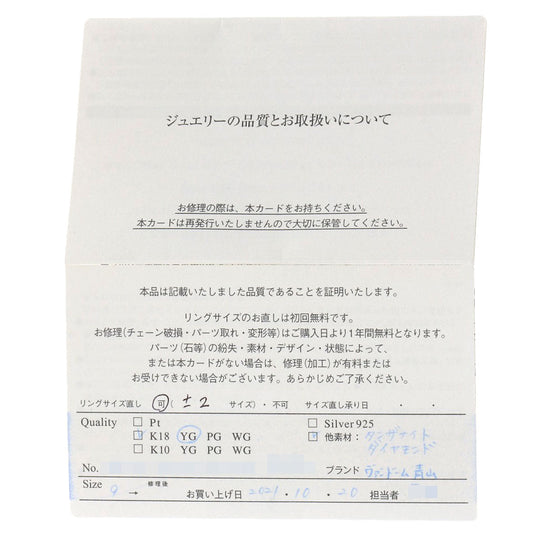 ジュエリーの品質とお取扱いについて
お修理の際は、本カードをお持ちください。
本カードは再発行いたしませんので大切に保管してください。
本品は記載いたしました品質であることを証明いたします。
リングサイズのお直しは初回無料です。
お修理(チェーン破損・パーツ取れ・変形等)はご購入日より1年間無料となります。
パーツ(石等)の紛失・素材・デザイン・状態によって、
または本カードがない場合は、修理(加工)が有料または
お受けできない場合がございます。あらかじめご了承ください。
リングサイズ直し 可(±2 サイズ)・不可 サイズ直し承り日 ・ ・
Quality □ Pt □ Silver 925
☑ K18 YG PG WG ☑ 他素材: タンザナイト
□ K10 YG PG WG ダイヤモンド
No. ブランド ヴァンドーム青山
Size 9 → 修理後 お買い上げ日 2021・10・20 担当者